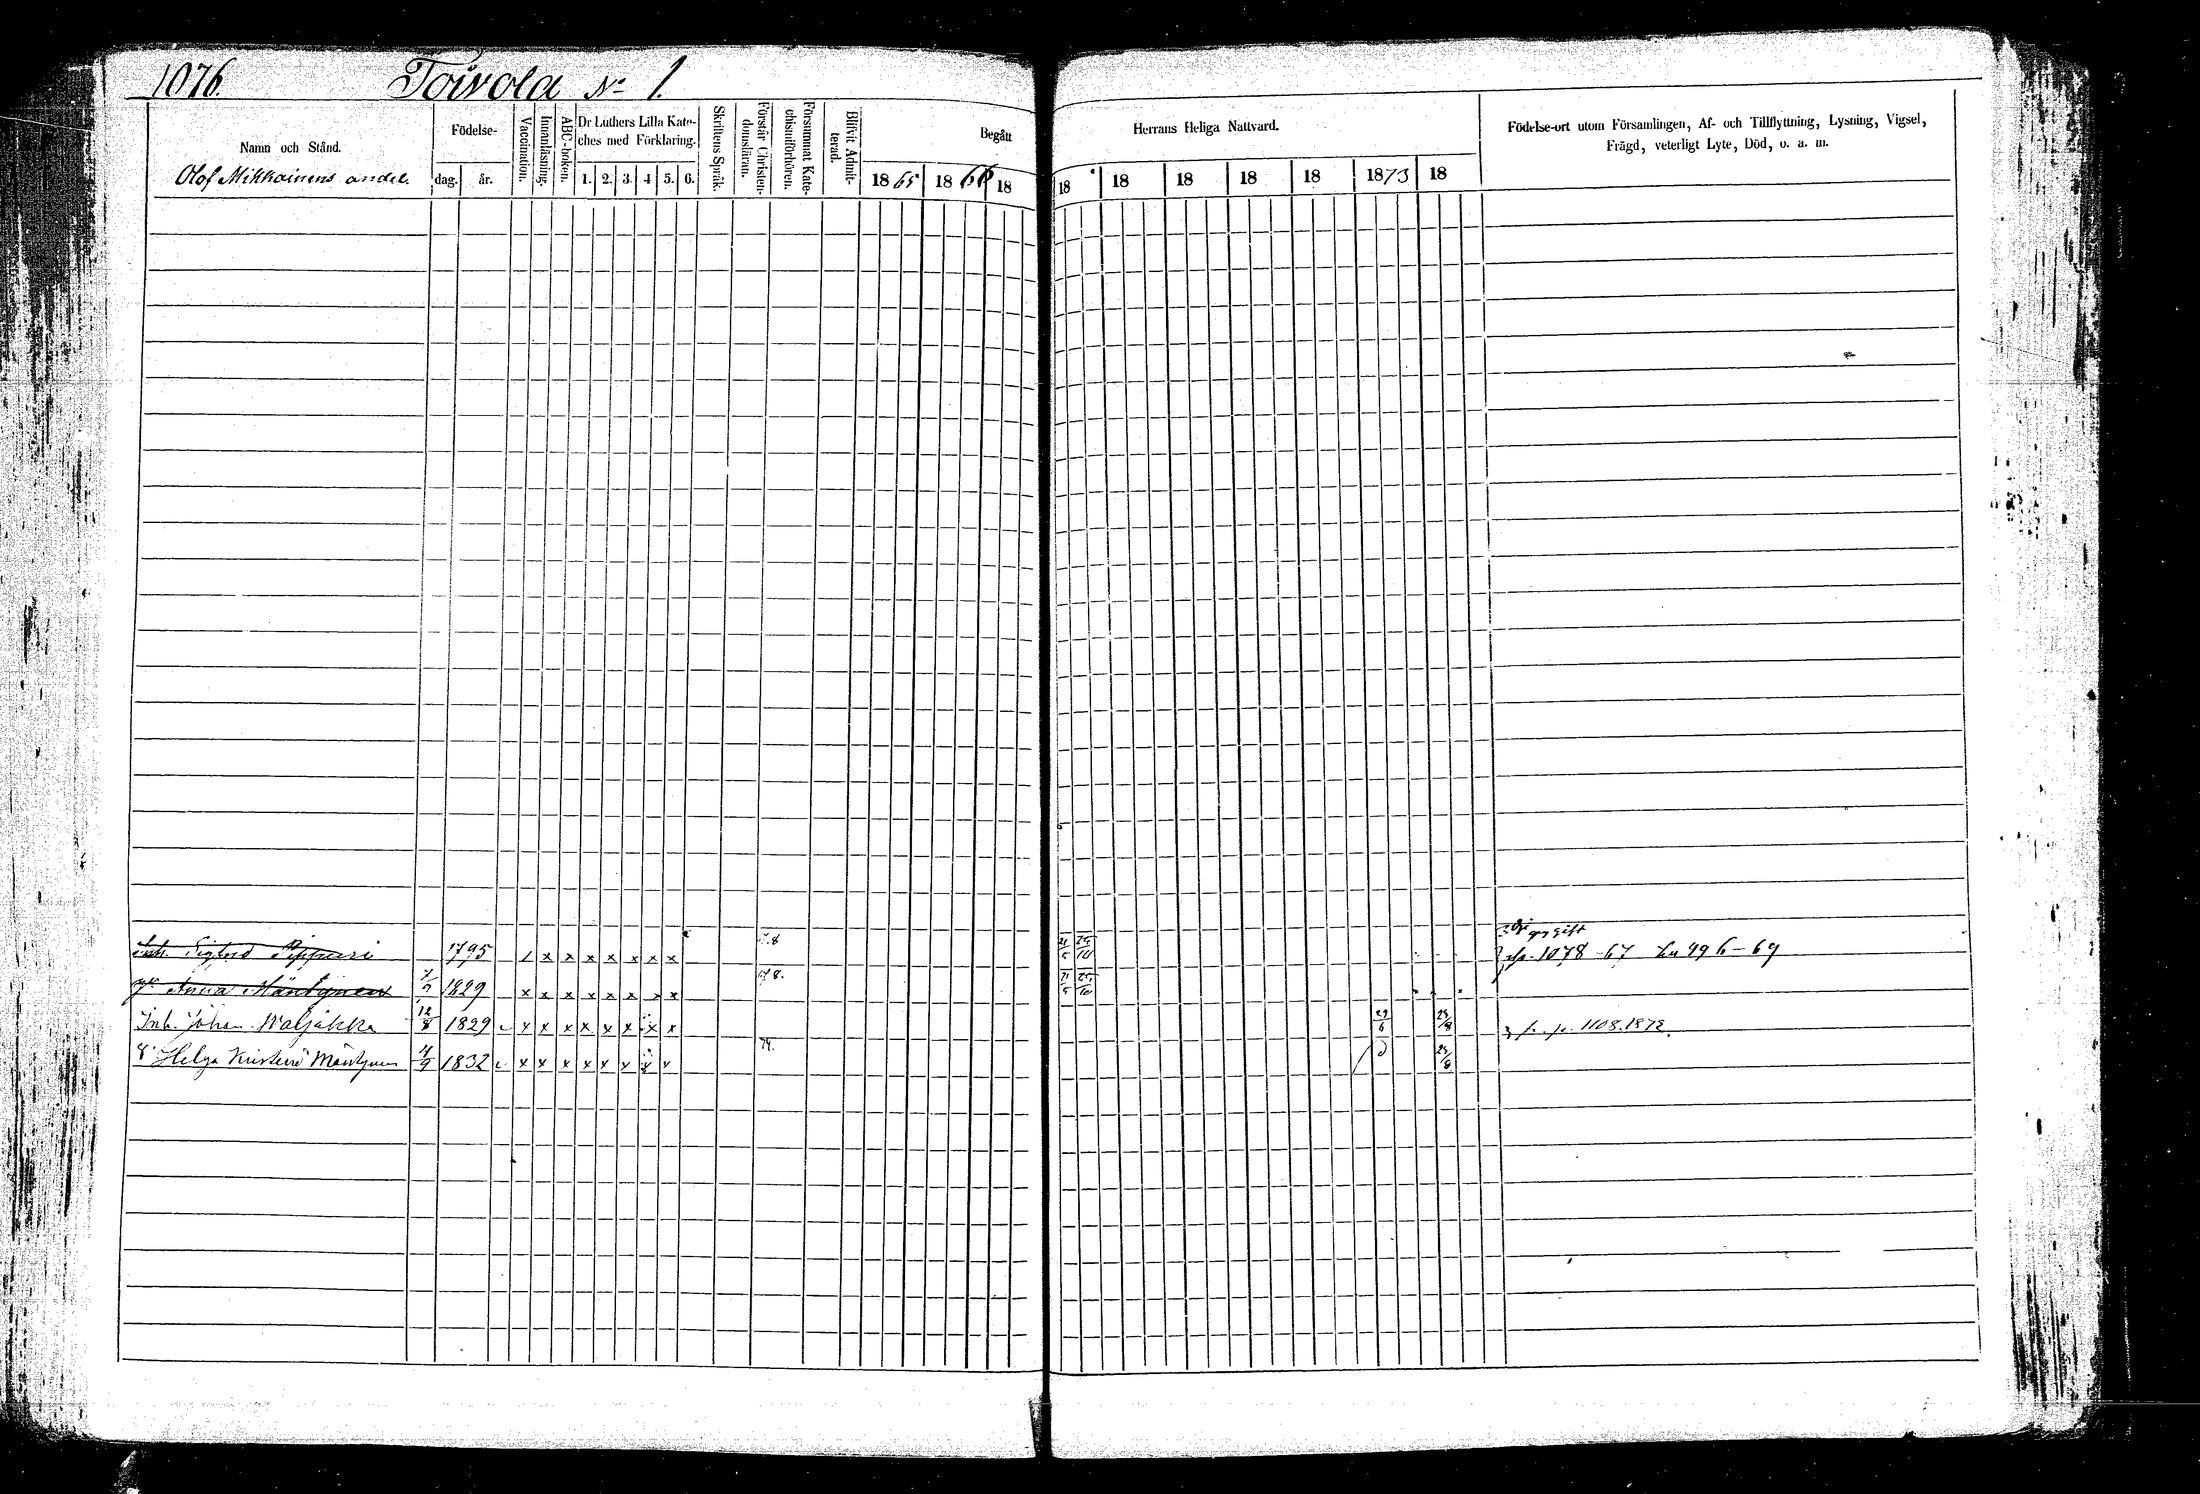 1076. Toivola No 1.
Namn och Stånd.
Olof Mikkoinens andel.
Födelse-
dag. år.
Vaccination.
Innanläsning.
ABC-boken.
Dr Luthers Lilla Kate-
ches med Förklaring.
1. 2. 3. 4 5. 6.
Skriftens Språk.
Förstår Christen-
domsläran.
Försummat Kate-
chismiförhören.
Blifvit Admit-
terad.
Begått
1865 1866 18
Herrans Heliga Nattvard.
18 18 18 18 18 1873 18
Födelse-ort utom Församlingen, Af- och Tillflyttning, Lysning, Vigsel,
Frägd, veterligt Lyte, Död, o. a. m.
Inh. Sigfrid Pippuri 1795 x x x x x x x 21/5 25/10 1078-67 496-69
Anna Mäntynen 1829 x x x x x x x x 21/5 25/10
Inh. Johan Waljakka 12/8 1829 x x x x x x x x 29/6 23/8 p. 1108.1872.
Helga Kristina Mäntynen 4/9 1832 x x x x x x x x 74. 23/8